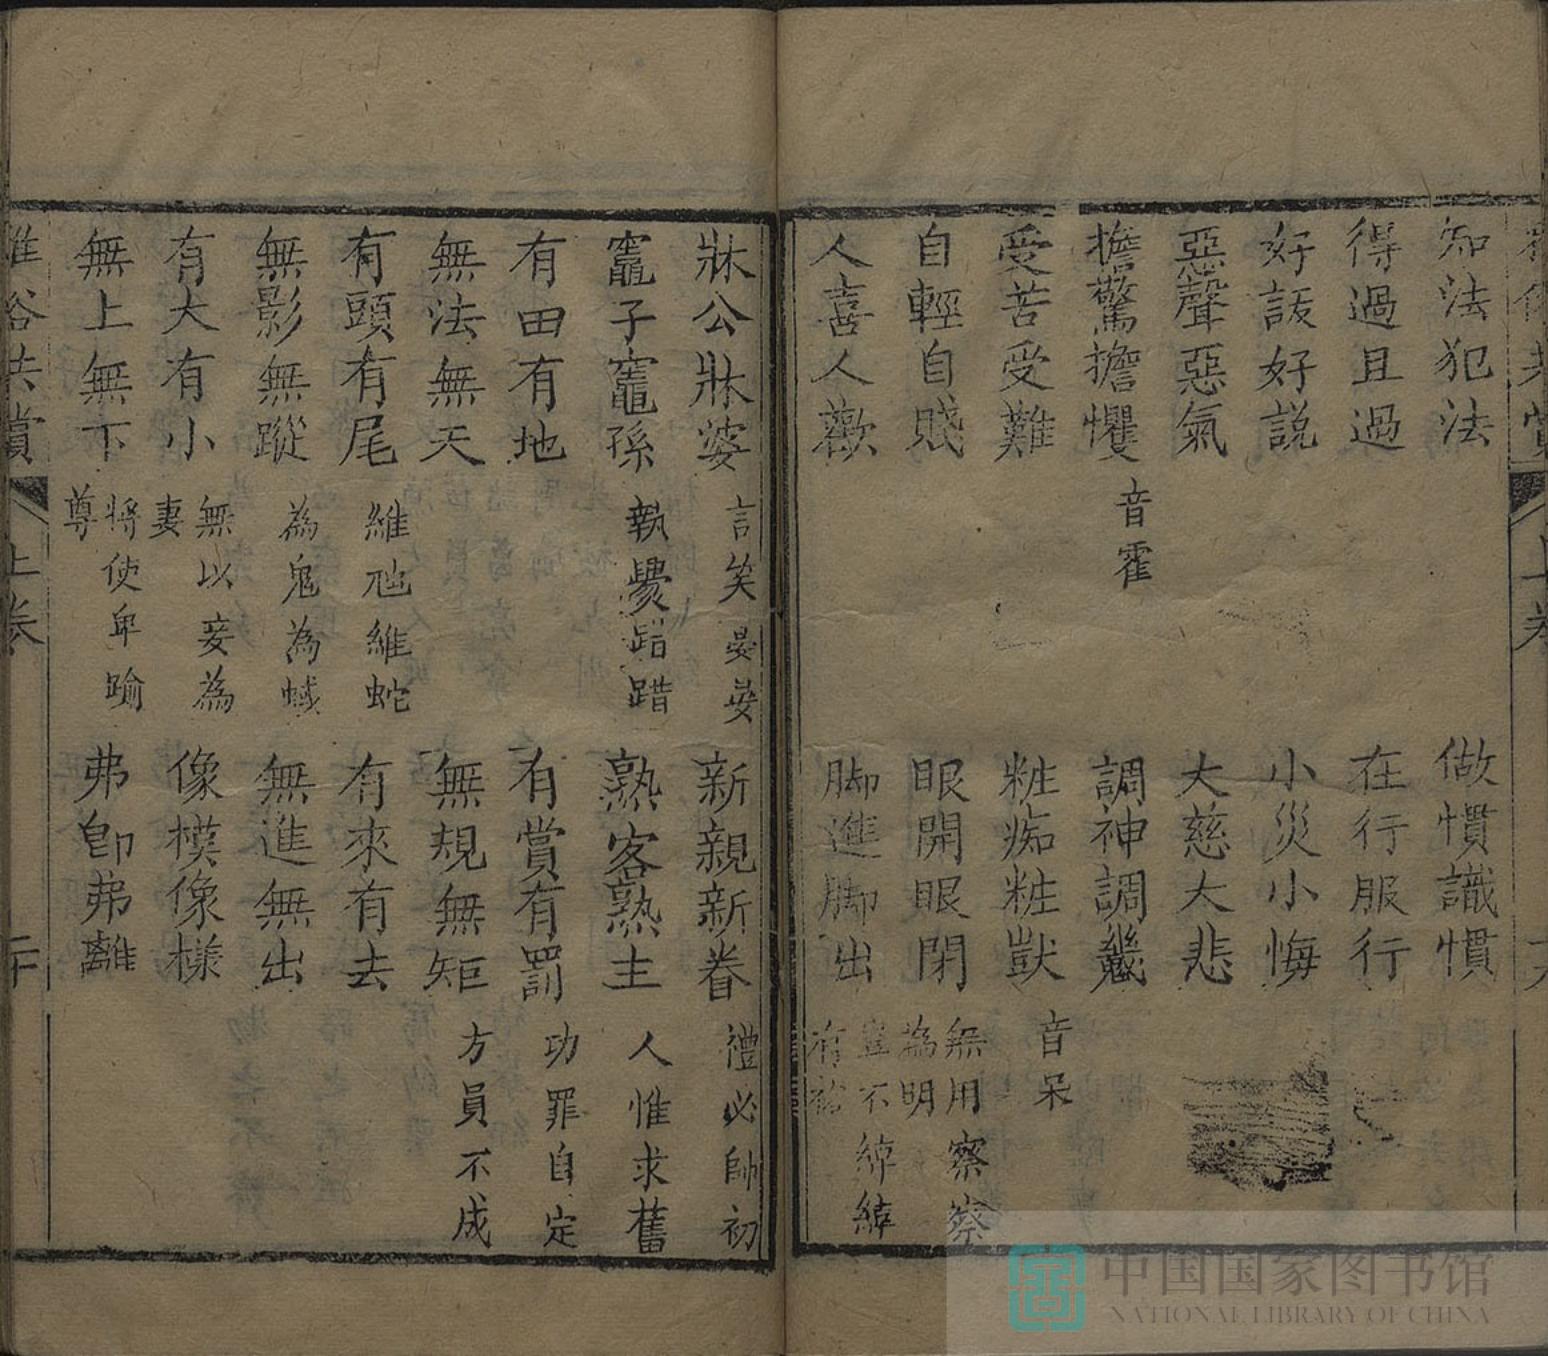 知法犯法 做慣識慣
得過且過 在行服行
好話好說 小災小悔
惡聲惡氣 大慈大悲
擔驚擔懼 音霍 調神調鬼
受苦受難 粧痴粧獃 音呆
自輕自賤 眼開眼閉 無用察察為明
人喜人歡 脚進脚出 豈不綽綽有裕
牀公牀婆 言笑晏晏 新親新眷 禮必帥初
竈子竈孫 執爨踖踖 熟客熟主 人惟求舊
有田有地 有賞有罰 功罪自定
無法無天 無規無矩 方員不成
有頭有尾 維虺維蛇 有來有去
無影無蹤 為鬼為蜮 無進無出
有大有小 無以妾為妻 像模像樣
無上無下 將使卑踰尊 弗卽弗離
雅俗共賞 上卷 二十
中国国家图书馆
NATIONAL LIBRARY OF CHINA